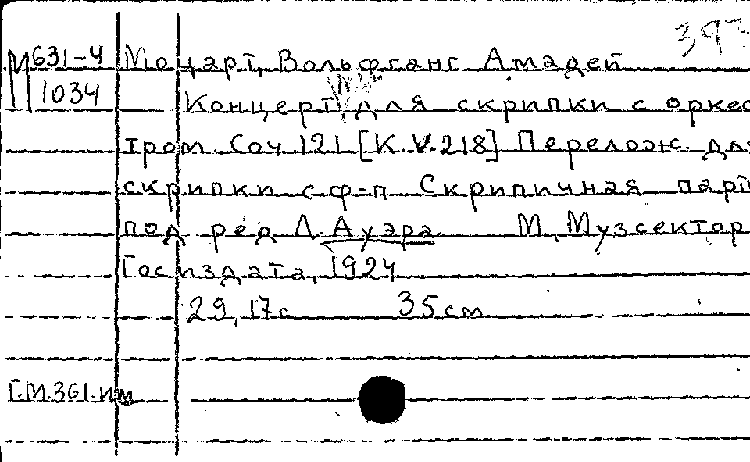 393
М631-4 Моцарт, Вольфганг Амадей
1034 Концерт для скрипки с оркес
тром Соч 121 [K.V.218] Перелож для
скрипки с ф-п Скрипичная парт
под ред Л. Ауэра М, Музсектор
Госиздата, 1924
29, 17с 35cm
Г.М.361.